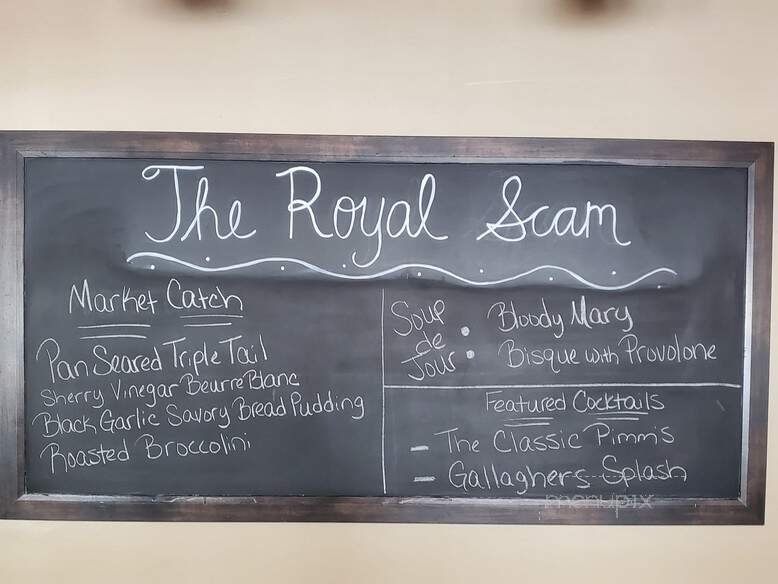 The Royal Scam
Market Catch
Pan Seared Triple Tail
Sherry Vinegar Beurre Blanc
Black Garlic Savory Bread Pudding
Roasted Broccolini
Soup
de
Jour
• Bloody Mary
• Bisque with Provolone
Featured Cocktails
- The Classic Pimm's
- Gallaghers Splash
menupix